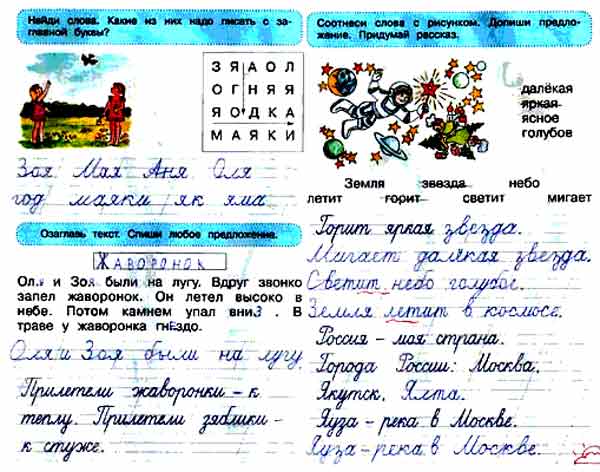 Найди слова. Какие из них надо писать с за-
главной буквы?
З Я А О Л
О Г Н Я Я
Я О Д К А
М А Я К И
Зоя Мая Аня Оля
год маяки як яма
Озаглавь текст. Спиши любое предложение.
ЖАВОРОНОК
Оля и Зоя были на лугу. Вдруг звонко
запел жаворонок. Он летел высоко в
небе. Потом камнем упал вниЗ. В
траве у жаворонка гнЕздо.
Оля и Зоя были на лугу.
Прилетели жаворонки – к
теплу. Прилетели зяблики –
к стуже.
Соотнеси слова с рисунком. Допиши предло-
жение. Придумай рассказ.
далёкая
яркая
ясное
голубов
Земля звезда небо
летит горит светит мигает
Горит яркая звезда.
Мигает далёкая звезда.
Светит небо голубое.
Земля летит в космосе.
Россия – моя страна.
Города России: Москва,
Якутск, Ялта.
Яуза – река в Москве.
Яуза – река в Москве.